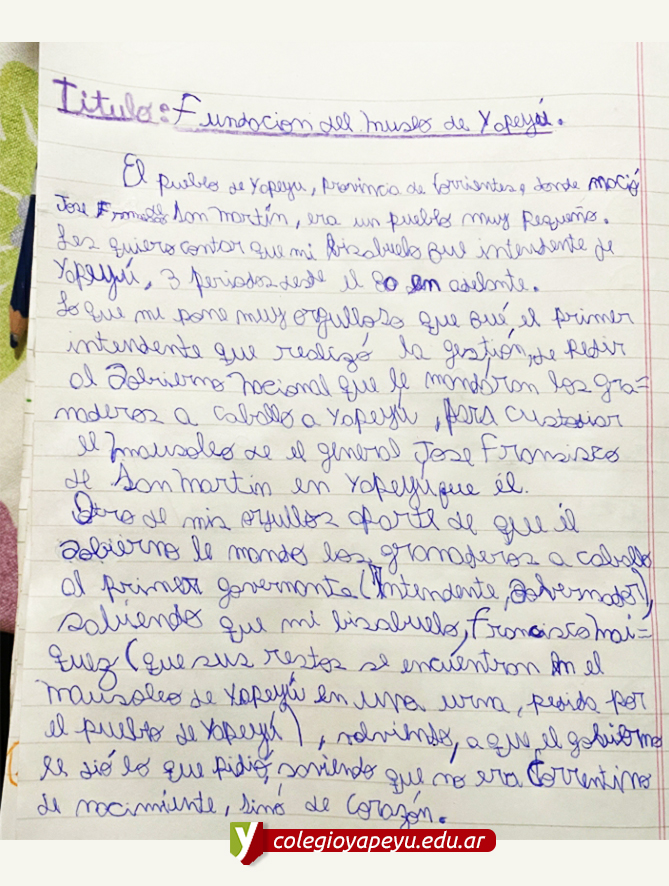 Titulo: Fundacion del museo de Yapeyú.
El pueblo de Yapeyu, provincia de Corrientes, donde nació
Jose Francisco de San Martín, era un pueblo muy pequeño.
Les quiero contar que mi bisabuelo fue intendente de
Yapeyú, 3 periodos desde el 80 en adelante.
Lo que me pone muy orgulloso que fué el primer
intendente que realizó la gestión, de pedir
al Gobierno nacional que le mandaran los gra=
naderos a caballo a Yapeyú, para custodiar
el mausoleo de el general Jose Fransisco
de San Martin en Yapeyú que él.
Otro de mis orgullos aparte de que él
Gobierno le mando los granaderos a caballo
al primer governante (Intendente, Gobernador),
sabiendo que mi bisabuelo, Francisco Mai=
quez (que sus restos se encuéntron en el
mausoleo de Yapeyú en una urna, pedida por
el pueblo de Yapeyú), volviendo, a que el gobierno
le dió lo que pidió, saviendo que no era Correntino
de nacimiente, sinó de corazón.
colegioyapeyu.edu.ar